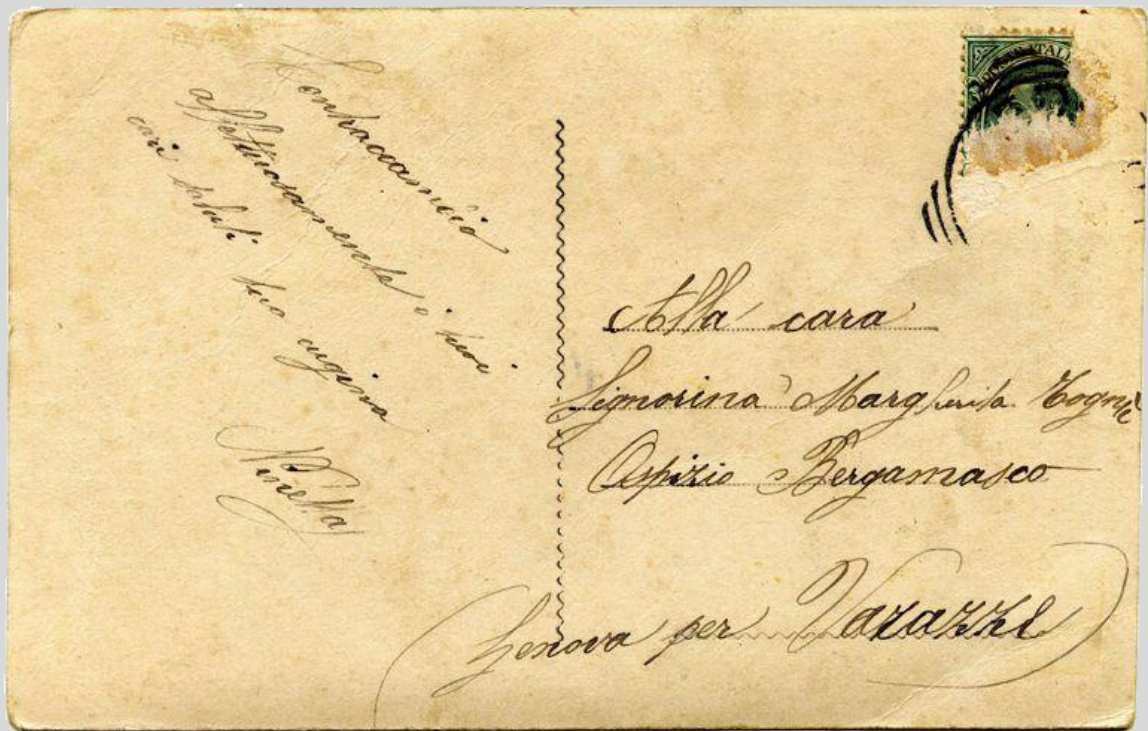 Contraccambio
affettuosamente i tuoi
cari saluti tua cugina
Ninetta
POSTE ITALI
Alla cara
Signorina Margherita Togni
Ospizio Bergamasco
Genova per Varazze